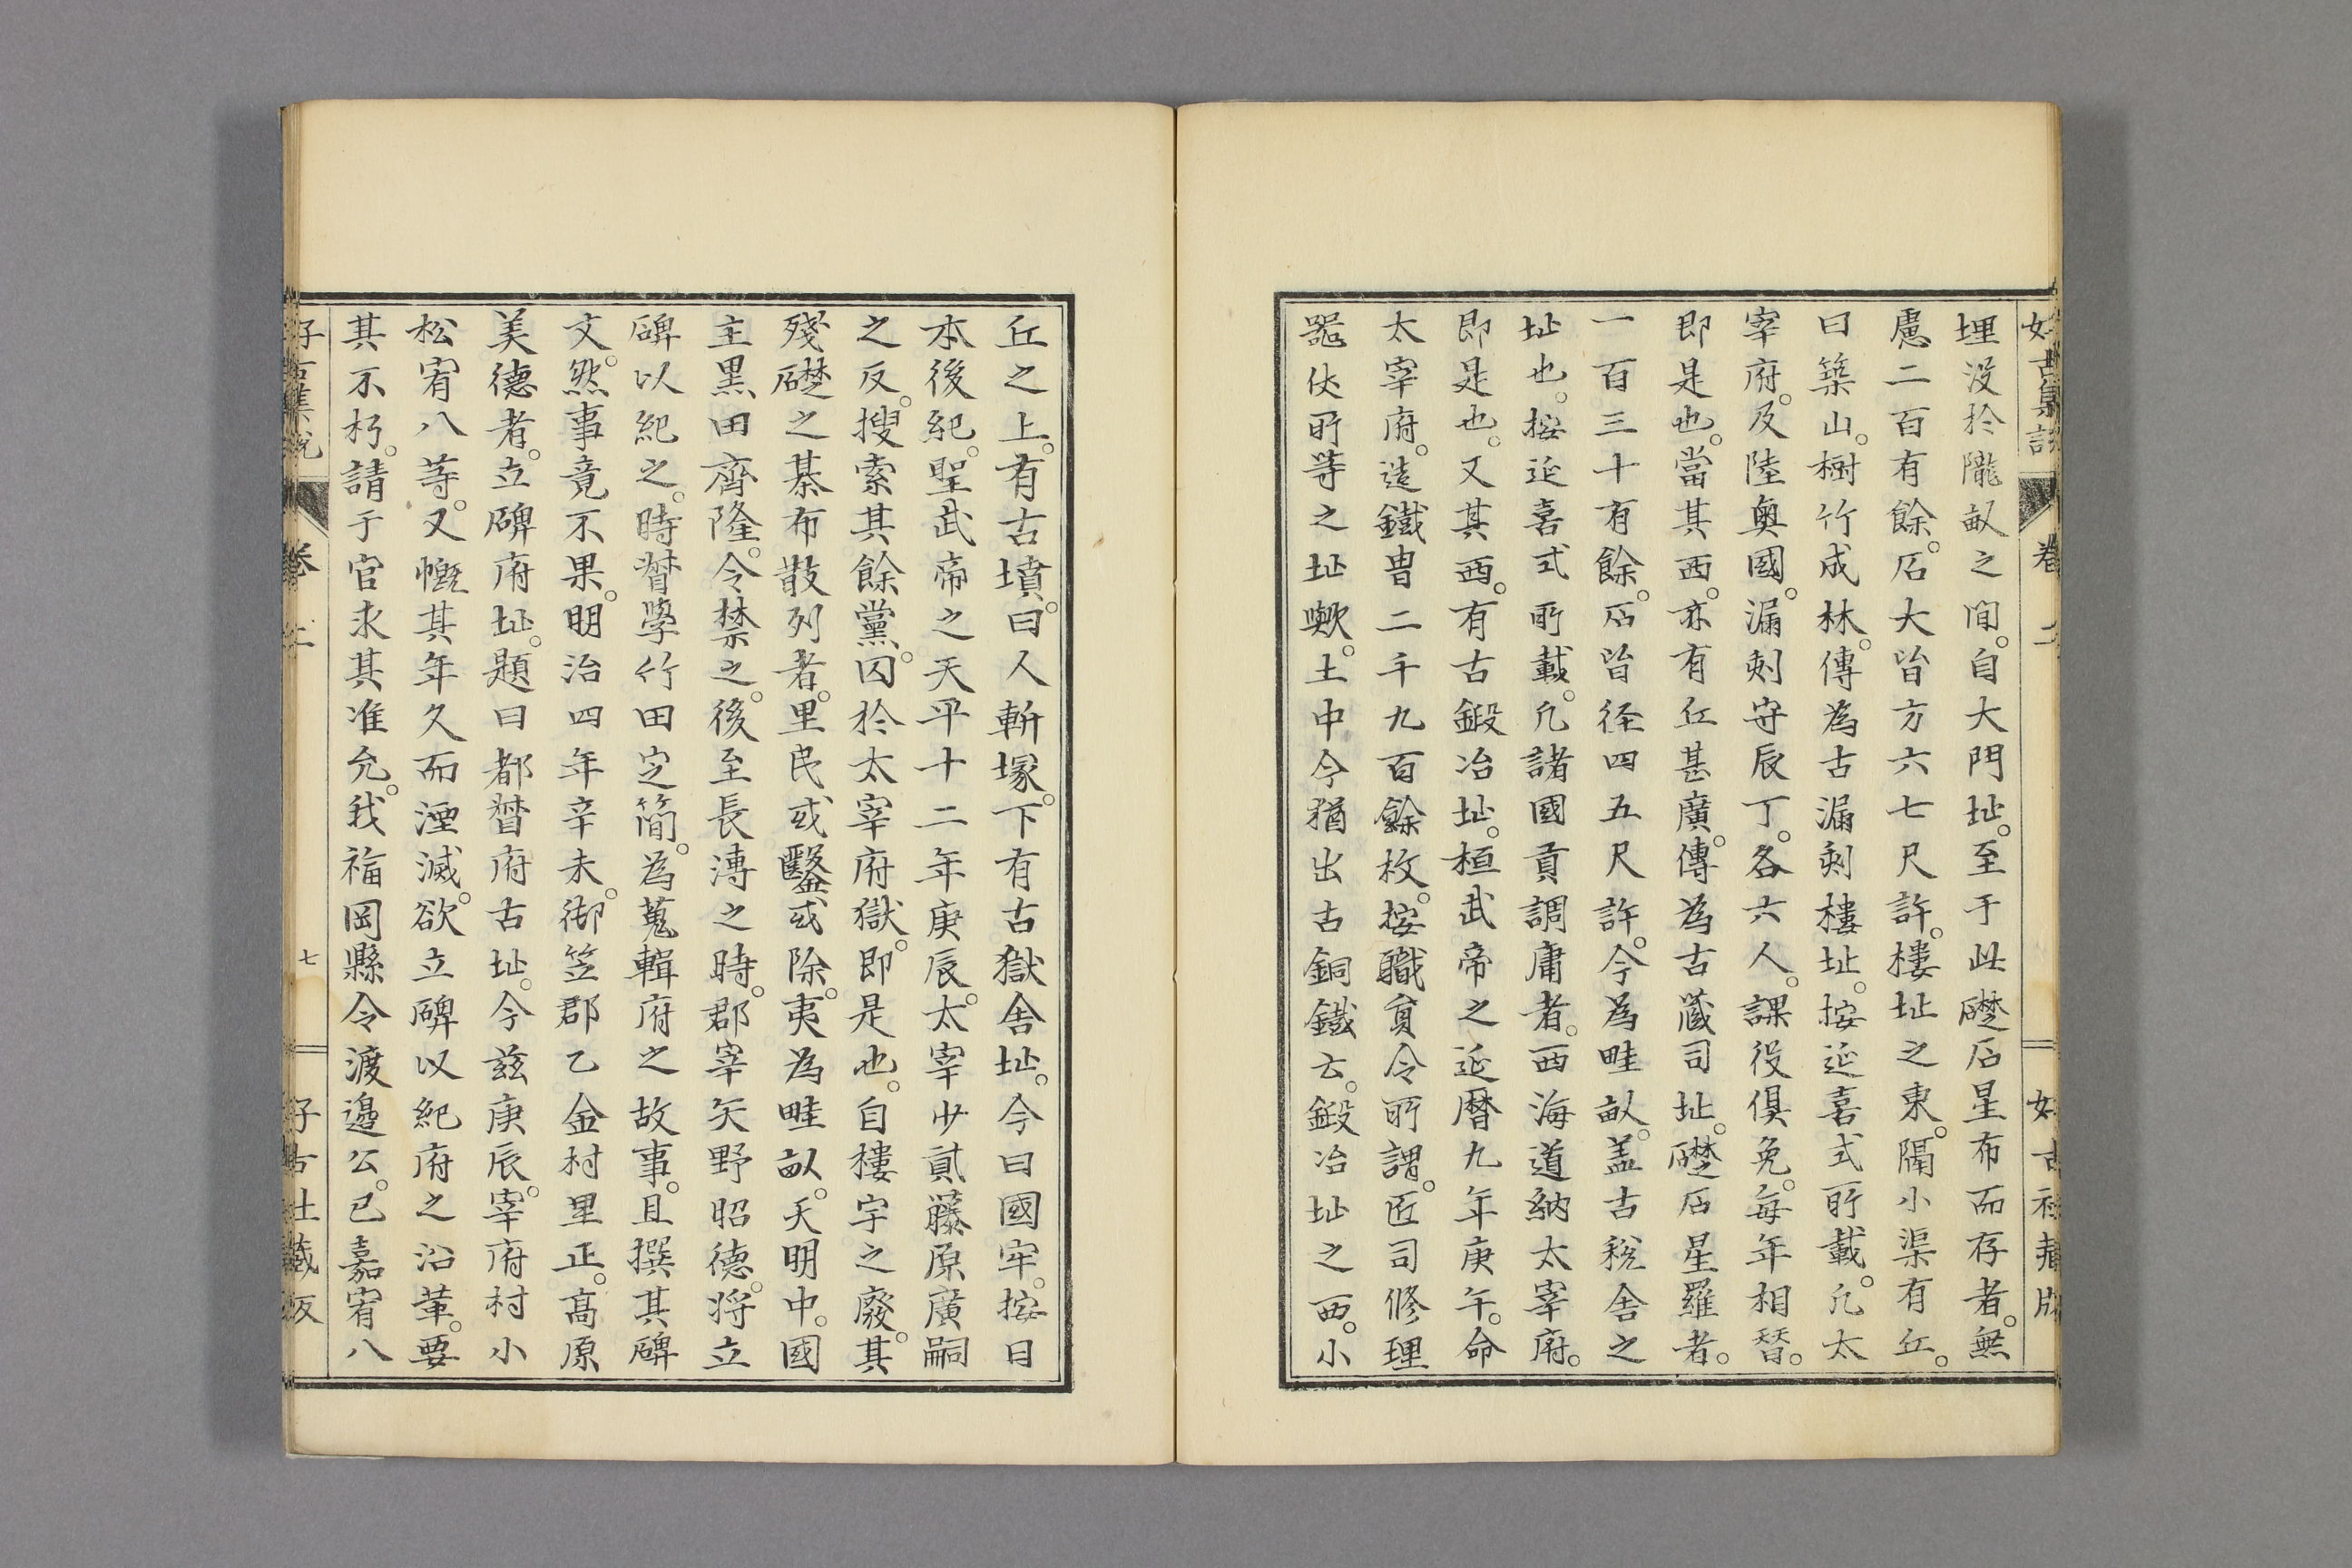 好古集説 卷二 好古社藏版
埋没於隴畝之間。自大門址。至于此礎石星布而存者。無
慮二百有餘。石大皆方六七尺許。樓址之東。隔小渠有丘。
曰築山。樹竹成林。傳為古漏刻樓址。按延喜式所載。凡太
宰府。及陸奧國。漏刻守辰丁。各六人。課役俱免。每年相替。
即是也。當其西。亦有丘甚廣。傳為古藏司址。礎石星羅者。
一百三十有餘。石皆径四五尺許。今為畦畝。盖古稅舍之
址也。按延喜式所載。凡諸國貢調庸者。西海道納太宰府。
即是也。又其西。有古鍛冶址。桓武帝之延曆九年庚午。命
太宰府。造鐵冑二千九百餘枚。按職員令所謂。匠司修理
器仗所等之址歟。土中今猶出古銅鐵云。鍛冶址之西。小
丘之上。有古墳。曰人斬塚。下有古獄舍址。今曰國牢。按日
本後紀。聖武帝之天平十二年庚辰。太宰少貳藤原廣嗣
之反。搜索其餘黨。囚於太宰府獄。即是也。自樓宇之廢。其
殘礎之碁布散列者。里民或鑿或除。夷為畦畝。天明中。國
主黒田齊隆。令禁之。後至長溥之時。郡宰矢野昭德。将立
碑以紀之。時督學竹田定簡。為蒐輯府之故事。且撰其碑
文。然事竟不果。明治四年辛未。御笠郡乙金村里正。高原
美德者。立碑府址。題曰都督府古址。今茲庚辰。宰府村小
松宥八等。又慨其年久而湮滅。欲立碑以紀府之沿革。要
其不朽。請于官求其准允。我福岡縣令渡邉公。已嘉宥八
好古集説 卷二 七 好古社藏版